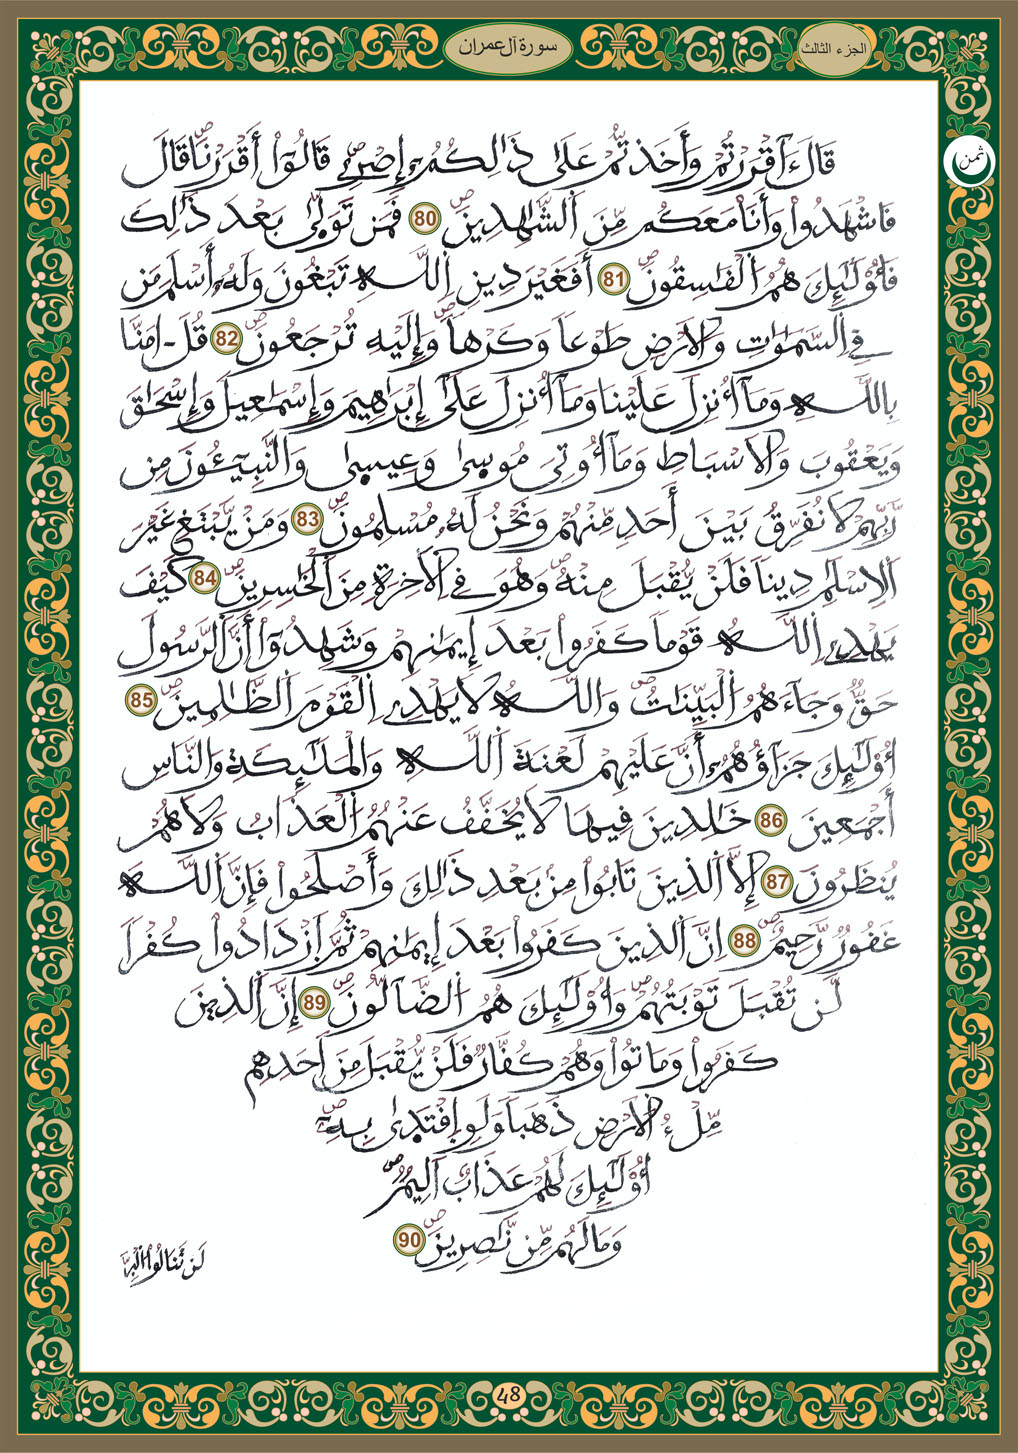 الجزء الثالث
سورة آل عمران
ثمن
قَالَ ءَآقْرَرْتُمْ وَأَخَذتُّمْ عَلَىٰ ذَٰلِكُمُۥٓ إِصْرِے قَالُوٓا۟ أَقْرَرْنَاۖ قَالَ
فَاشْهَدُوا۟ وَأَنَا مَعَكُم مِّنَ اَلشَّٰهِدِينَۖ 80 فَمَن تَوَلَّىٰ بَعْدَ ذَٰلِكَ
فَأُو۟لَٰٓئِكَ هُمُ اُلْفَٰسِقُونَۖ 81 أَفَغَيْرَ دِينِ اِللَّهِ تَبْغُونَ وَلَهُۥٓ أَسْلَمَ مَن
فِے اِلسَّمَٰوَٰتِ وَالَارْضِ طَوْعاً وَكَرْهاًۖ وَإِلَيْهِ تُرْجَعُونَۖ 82 قُلَ اٰمَنَّا
بِاللَّهِ وَمَآ أُنزِلَ عَلَيْنَا وَمَآ أُنزِلَ عَلَىٰٓ إِبْرَٰهِيمَ وَإِسْمَٰعِيلَ وَإِسْحَٰقَ
وَيَعْقُوبَ وَالَاسْبَاطِ وَمَآ أُوتِيَ مُوسَىٰ وَعِيسَىٰ وَالنَّبِيٓـُٔونَ مِن
رَّبِّهِمْ لَا نُفَرِّقُ بَيْنَ أَحَدٍ مِّنْهُمْ وَنَحْنُ لَهُۥ مُسْلِمُونَۖ 83 وَمَنْ يَّبْتَغِ غَيْرَ
اَلِاسْلَٰمِ دِيناً فَلَنْ يُّقْبَلَ مِنْهُۖ وَهُوَ فِے اِلَاخِرَةِ مِنَ اَلْخَٰسِرِينَۖ 84 كَيْفَ
يَهْدِے اِللَّهُ قَوْماً كَفَرُوا۟ بَعْدَ إِيمَٰنِهِمْ وَشَهِدُوٓا۟ أَنَّ اَلرَّسُولَ
حَقٌّ وَجَآءَهُمُ اُلْبَيِّنَٰتُۖ وَاللَّهُ لَا يَهْدِے اِلْقَوْمَ اَلظَّٰلِمِينَۖ 85
أُو۟لَٰٓئِكَ جَزَآؤُهُمُۥٓ أَنَّ عَلَيْهِمْ لَعْنَةَ اَللَّهِ وَالْمَلَٰٓئِكَةِ وَالنَّاسِ
أَجْمَعِينَ 86 خَٰلِدِينَ فِيهَا لَا يُخَفَّفُ عَنْهُمُ اُلْعَذَابُ وَلَا هُمْ
يُنظَرُونَ 87 إِلَّا اَلذِينَ تَابُوا۟ مِنۢ بَعْدِ ذَٰلِكَ وَأَصْلَحُوا۟ فَإِنَّ اَللَّهَ
غَفُورٌ رَّحِيمٌۖ 88 اِنَّ اَلذِينَ كَفَرُوا۟ بَعْدَ إِيمَٰنِهِمْ ثُمَّ اَزْدَادُوا۟ كُفْراً
لَّن تُقْبَلَ تَوْبَتُهُمْۖ وَأُو۟لَٰٓئِكَ هُمُ اُلضَّآلُّونَۖ 89 إِنَّ اَلذِينَ
كَفَرُوا۟ وَمَاتُوا۟ وَهُمْ كُفَّارٌ فَلَنْ يُّقْبَلَ مِنَ اَحَدِهِم
مِّلْءُ اُلَارْضِ ذَهَباً وَلَوِ اِفْتَدَىٰ بِهِۦٓۖ
أُو۟لَٰٓئِكَ لَهُمْ عَذَابٌ اَلِيمٌۖ
وَمَا لَهُم مِّن نَّٰصِرِينَۖ 90
لَن تَنَالُوا۟ اُلْبِرَّ
48